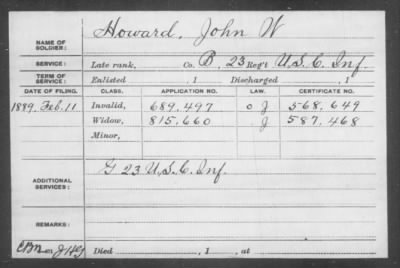 NAME OF SOLDIER: Howard, John W
SERVICE: Late rank, Co. B, 23 Reg't U.S.C. Inf.
TERM OF SERVICE: Enlisted , 1 Discharged , 1
DATE OF FILING. CLASS. APPLICATION NO. LAW. CERTIFICATE NO.
1889, Feb. 11 Invalid, 689.497 o J 568.649
Widow, 815.660 J 587.468
Minor,
ADDITIONAL SERVICES: G 23 U.S.C. Inf.
REMARKS:
Died , 1 , at